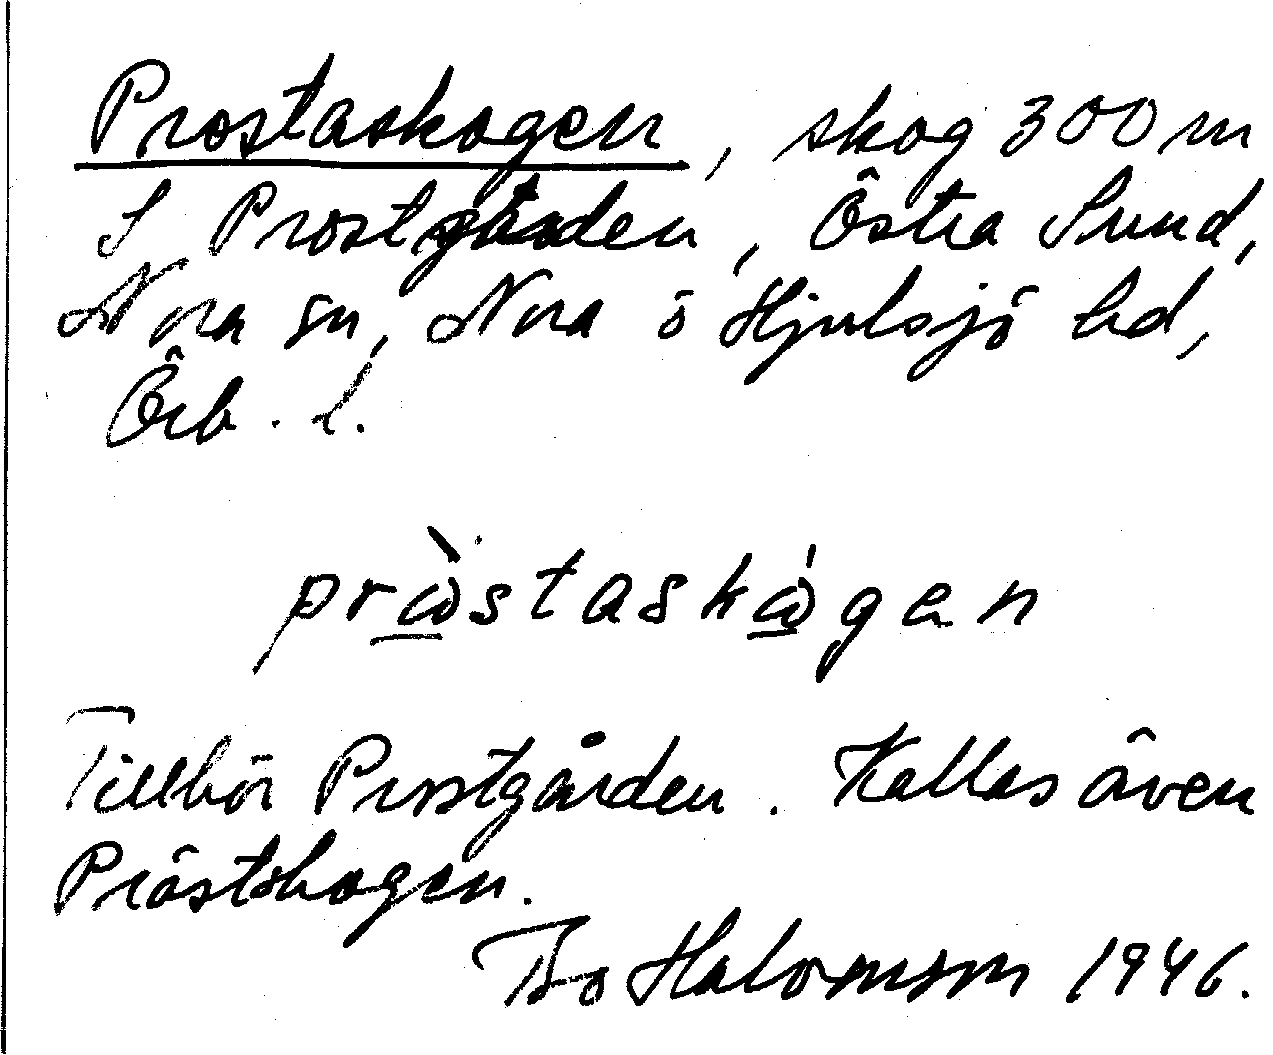 Prostaskogen, skog 300 m
S Prostgården, Östra Sund,
Nora sn, Nora o Hjulsjö bd,
Örb. l.
pròstaskógen
Tillhör Prostgården. Kallas även
Prästskogen.
Bo 1946.